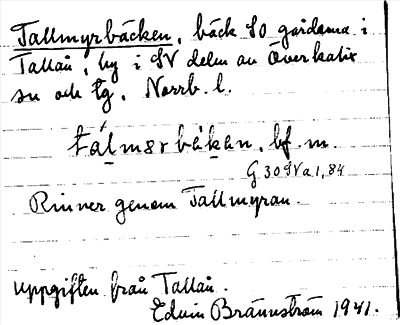 Tallmyrbäcken, bäck SO gårdarna i
Tallån, by i SV delen av Överkalix
sn och tg, Norrb. l.
tálmərbäkən. bf. m.
G 30 SV a 1, 84
Rinner genom Tallmyran.
Uppgiften från Tallån.
Edvin Brännström 1941.